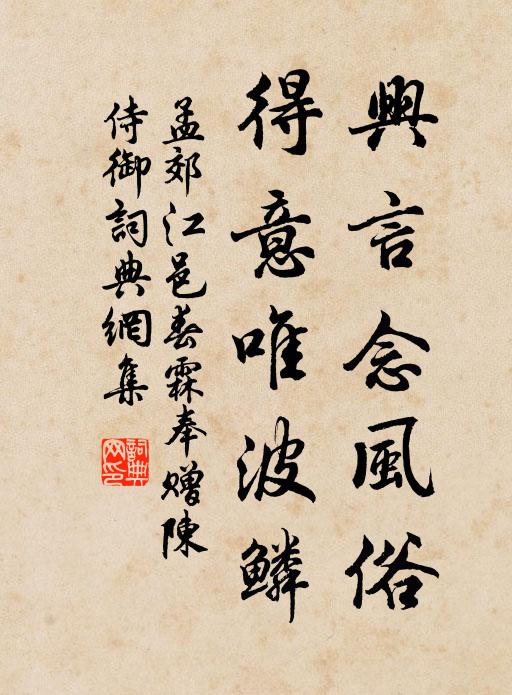 興言念風俗
得意唯波鱗
孟郊江邑春霖奉贈陳
侍御詞典網集
詞典網印